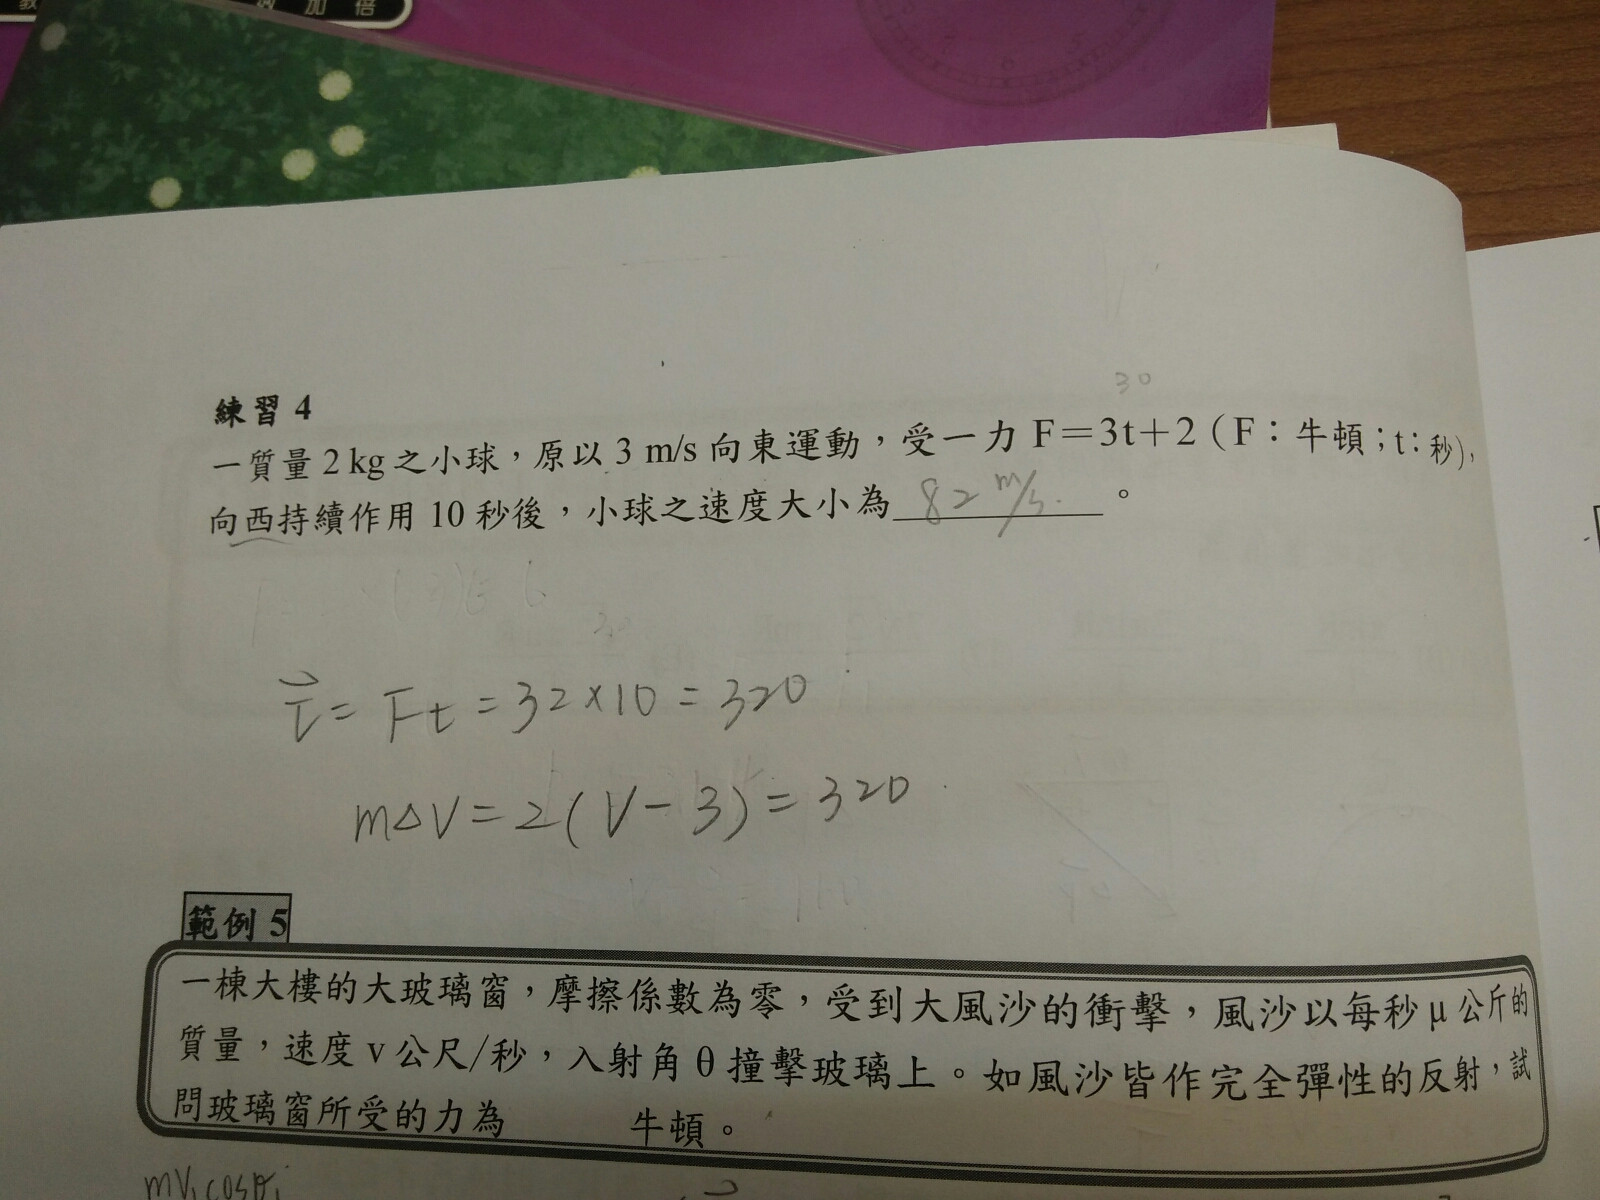 效加倍
30
練習 4
一質量 2 kg 之小球，原以 3 m/s 向東運動，受一力 F＝3t＋2（F：牛頓；t：秒），
向西持續作用 10 秒後，小球之速度大小為 82 m/s 。
= Ft = 32×10 = 320
m△V = 2(V-3) = 320
範例 5
一棟大樓的大玻璃窗，摩擦係數為零，受到大風沙的衝擊，風沙以每秒 μ 公斤的
質量，速度 v 公尺/秒，入射角 θ 撞擊玻璃上。如風沙皆作完全彈性的反射，試
問玻璃窗所受的力為 牛頓。